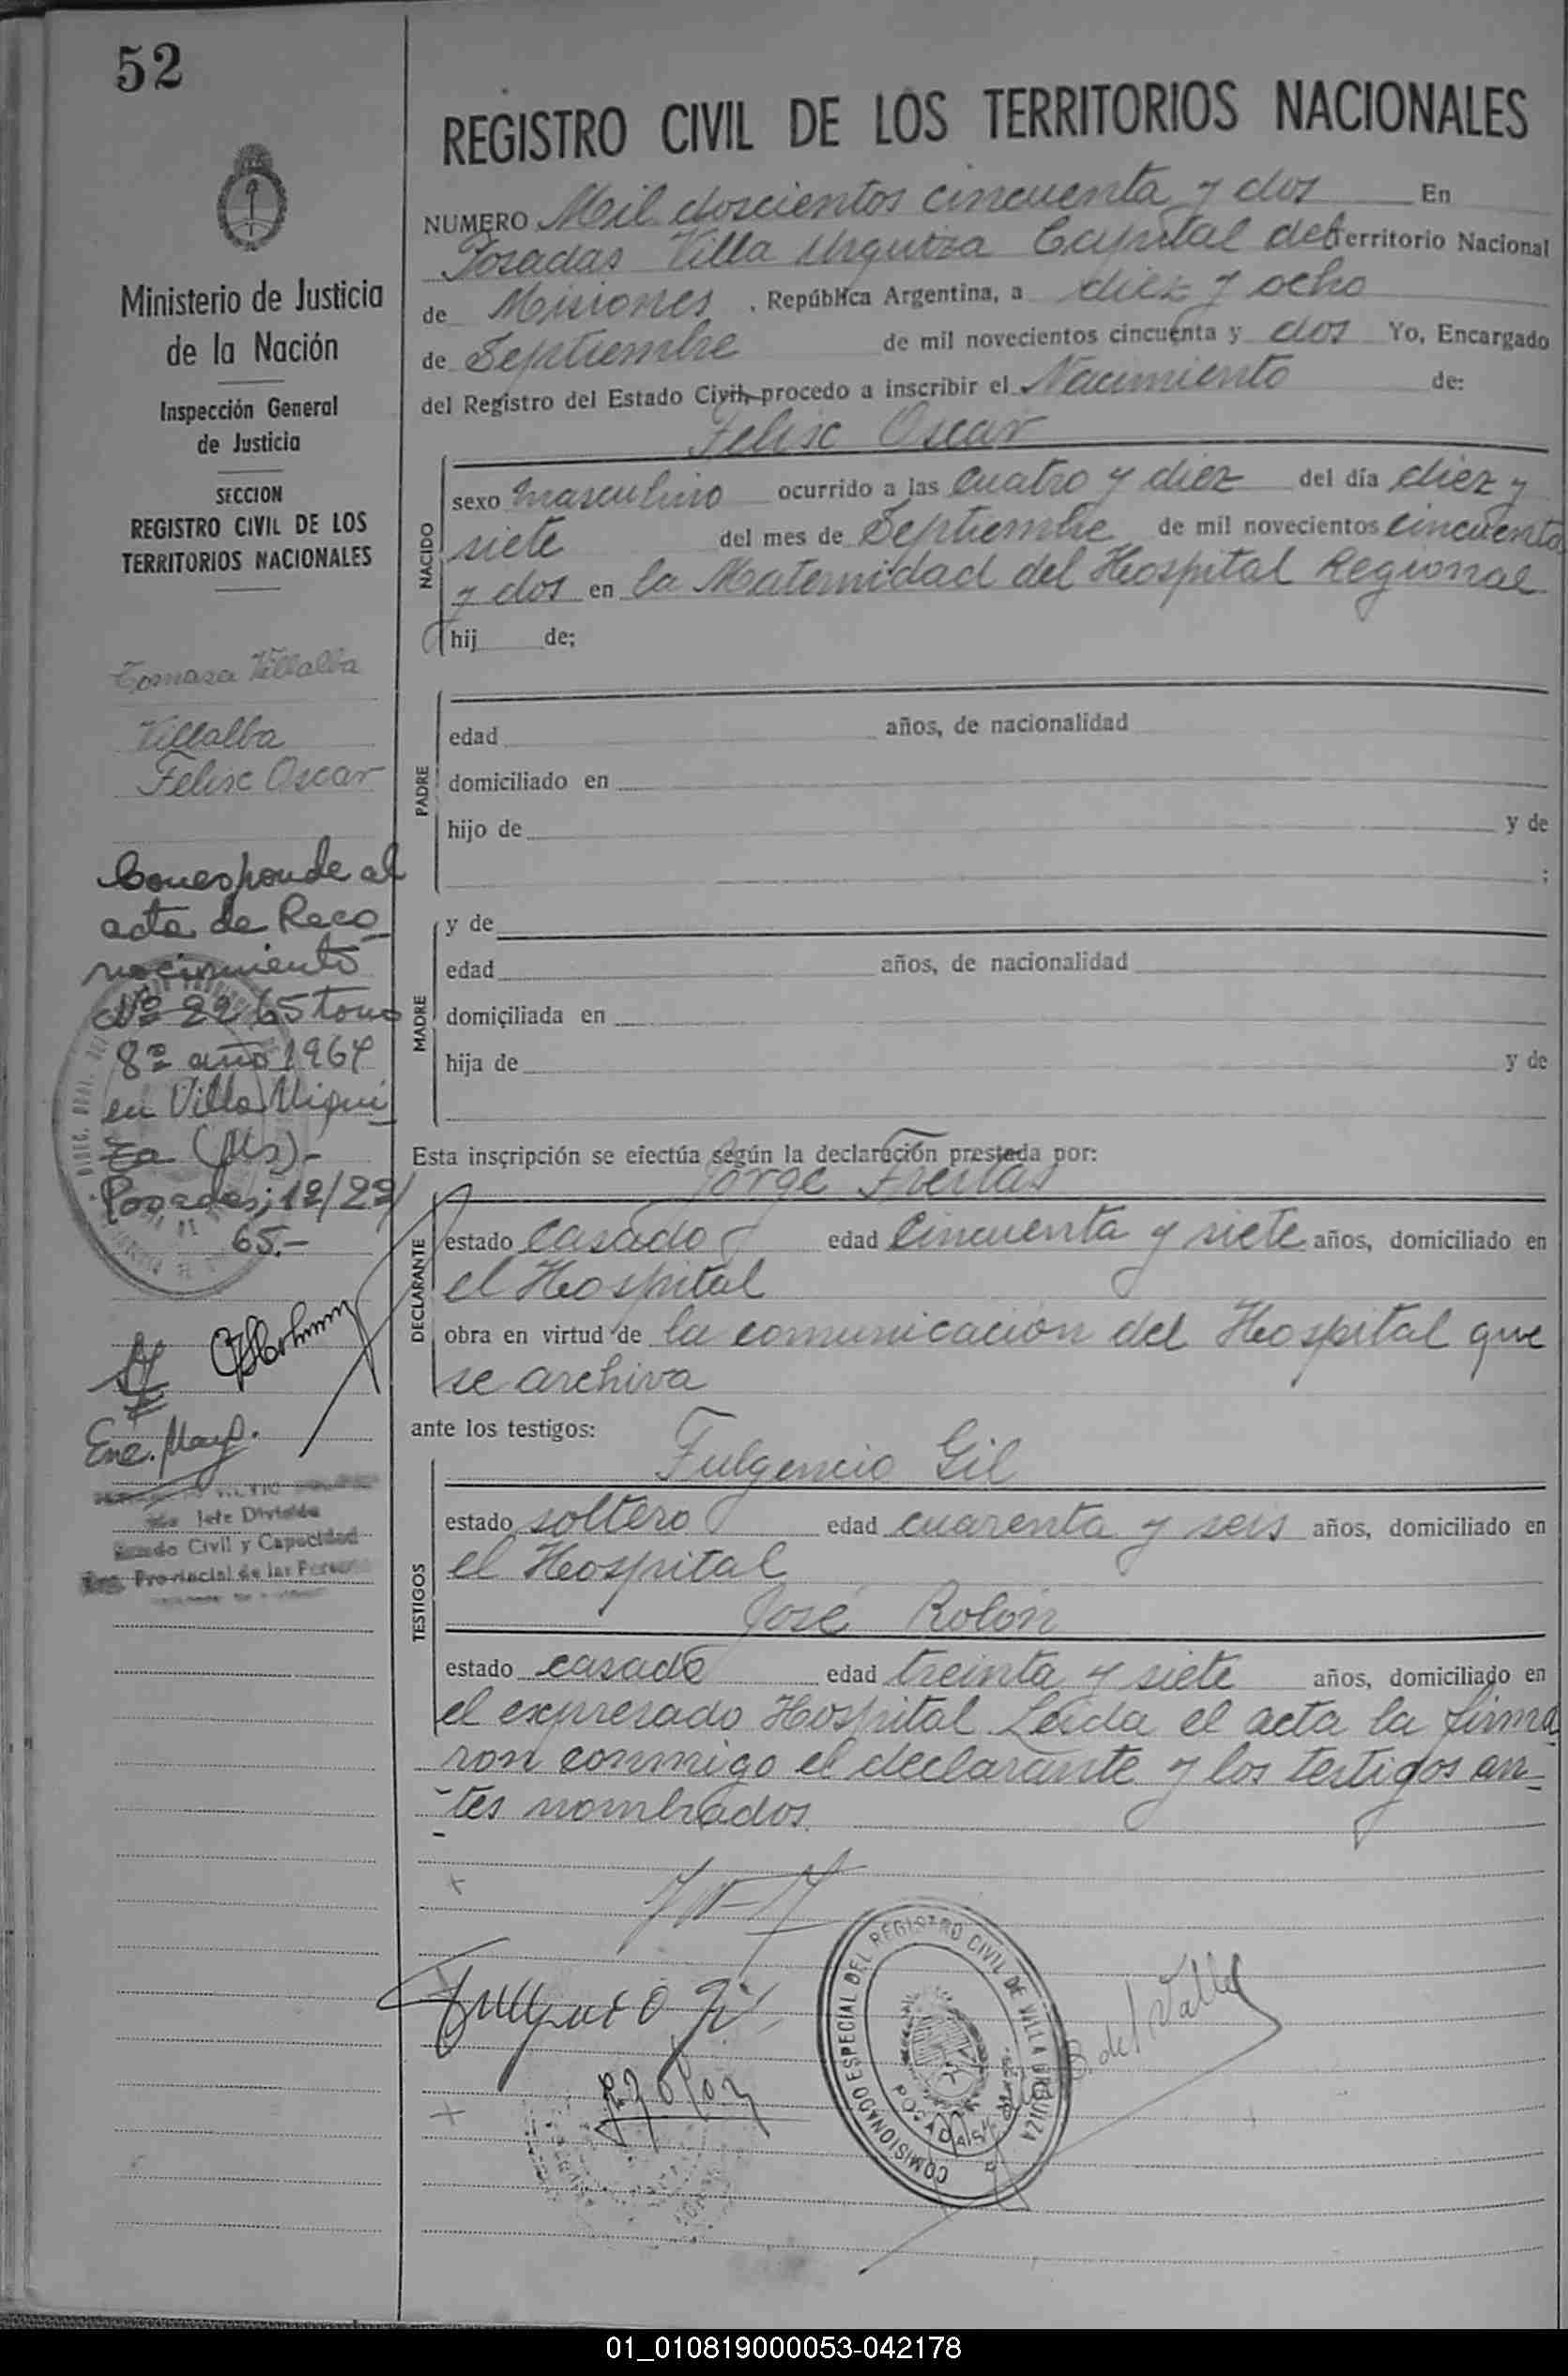 52
Ministerio de Justicia
de la Nación
Inspección General
de Justicia
SECCION
REGISTRO CIVIL DE LOS
TERRITORIOS NACIONALES
Tomasa Villalba
Villalba
Felix Oscar
Corresponde al
acta de Reco-
nocimiento
Nº 2265 tomo
8º año 1964
en Villa Urqui-
za (Ms)-
Posadas; 12/22/
65.-
Enc. Mayo.
Jefe División
Estado Civil y Capacidad
Reg. Provincial de las Personas
REGISTRO CIVIL DE LOS TERRITORIOS NACIONALES
NUMERO Mil doscientos cincuenta y dos En
Posadas Villa Urquiza Capital del Territorio Nacional
de Misiones, República Argentina, a diez y ocho
de Septiembre de mil novecientos cincuenta y dos Yo, Encargado
del Registro del Estado Civil, procedo a inscribir el Nacimiento de:
Felix Oscar
NACIDO
sexo masculino ocurrido a las cuatro y diez del día diez y
siete del mes de Septiembre de mil novecientos cincuenta
y dos en la Maternidad del Hospital Regional
hij de;
PADRE
edad años, de nacionalidad
domiciliado en
hijo de y de
;
MADRE
y de
edad años, de nacionalidad
domiciliada en
hija de y de
Esta inscripción se efectúa según la declaración prestada por:
Jorge Freitas
DECLARANTE
estado casado edad cincuenta y siete años, domiciliado en
el Hospital
obra en virtud de la comunicación del Hospital que
se archiva
ante los testigos:
Fulgencio Gil
TESTIGOS
estado soltero edad cuarenta y seis años, domiciliado en
el Hospital
José Rolón
estado casado edad treinta y siete años, domiciliado en
el expresado Hospital Leída el acta la firma
ron conmigo el declarante y los testigos an-
tes nombrados.
Fulgencio Gil
J. Rolon
COMISIONADO ESPECIAL DEL REGISTRO CIVIL DE VILLA URQUIZA
POSADAS
del Valle
01_010819000053-042178